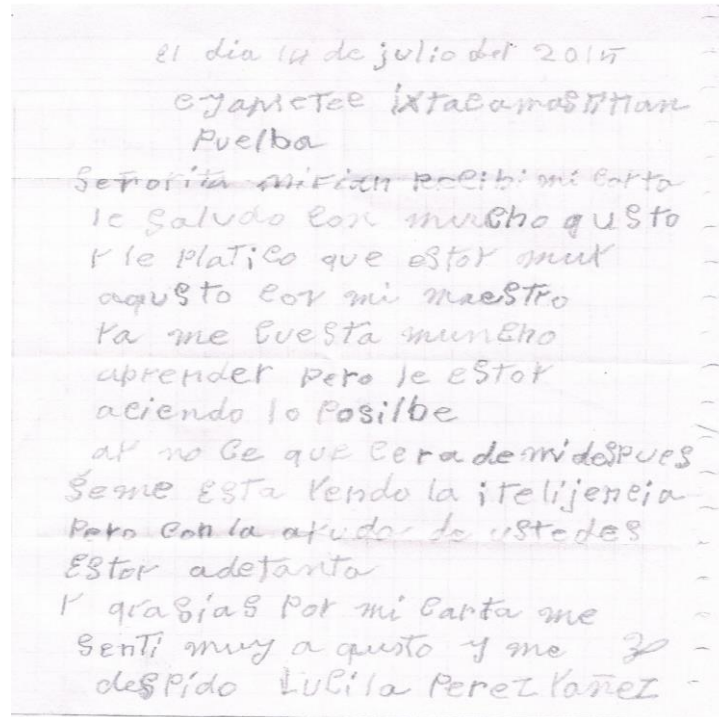 el dia 14 de julio del 2015
ixtacamastitlan
Puelba
Señorita mirian Recibi mi carta
le saludo con muncho qusto
Y le PlaTico que estoY muY
aqusto con mi maestro
Ya me cuesta muncho
aprender Pero le estoY
aciendo lo Posilbe
aY no ce que cera de mi desPues
Seme Esta Yendo la itelijencia
Pero con la aYuda de ustedes
EstoY adetanta
Y qrasias Por mi carta me
senti muy a qusto y me
desPido Lucila Perez Yañez